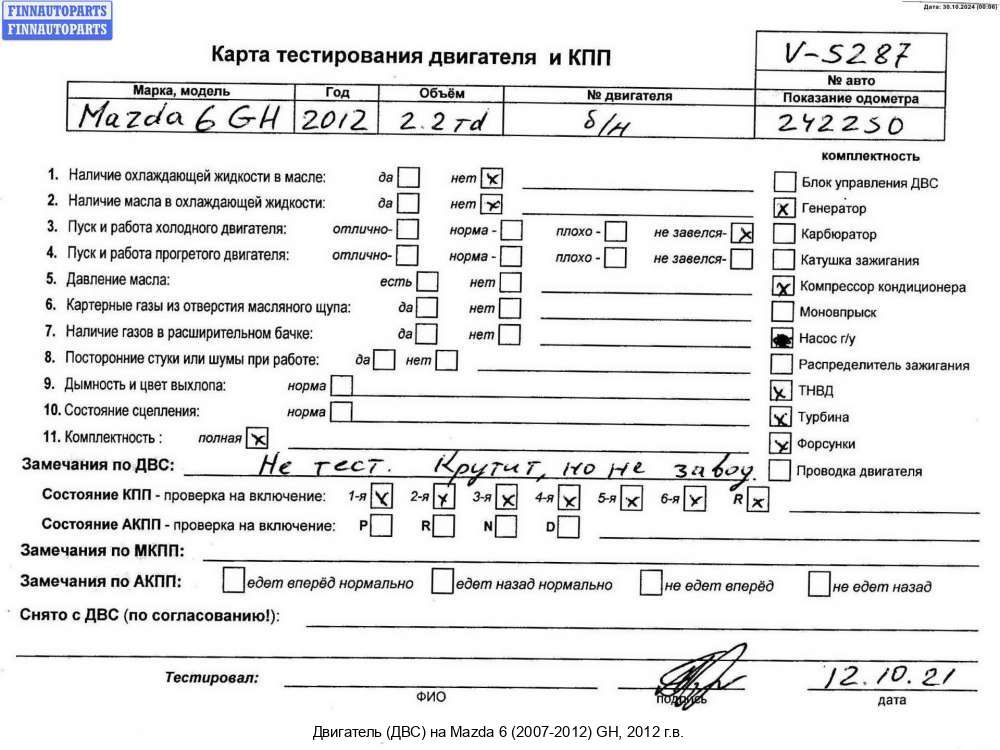 FINNAUTOPARTS
FINNAUTOPARTS
Дата: 30.10.2024 (00:06)
Карта тестирования двигателя и КПП
V-5287
№ авто
Марка, модель Год Объём № двигателя Показание одометра
Mazda 6 GH 2012 2.2 td б/н 242250
комплектность
1. Наличие охлаждающей жидкости в масле: да нет x
Блок управления ДВС
2. Наличие масла в охлаждающей жидкости: да нет x
x Генератор
3. Пуск и работа холодного двигателя: отлично- норма - плохо - не завелся- x
Карбюратор
4. Пуск и работа прогретого двигателя: отлично- норма - плохо - не завелся-
Катушка зажигания
5. Давление масла: есть нет
x Компрессор кондиционера
6. Картерные газы из отверстия масляного щупа: да нет
Моновпрыск
7. Наличие газов в расширительном бачке: да нет
Насос г/у
8. Посторонние стуки или шумы при работе: да нет
Распределитель зажигания
9. Дымность и цвет выхлопа: норма
x ТНВД
10. Состояние сцепления: норма
x Турбина
11. Комплектность : полная x
x Форсунки
Замечания по ДВС: Не тест. Крутит, но не завод.
Проводка двигателя
Состояние КПП - проверка на включение: 1-я x 2-я x 3-я x 4-я x 5-я x 6-я x R x
Состояние АКПП - проверка на включение: P R N D
Замечания по МКПП:
Замечания по АКПП: едет вперёд нормально едет назад нормально не едет вперёд не едет назад
Снято с ДВС (по согласованию!):
Тестировал: 12.10.21
ФИО подпись дата
Двигатель (ДВС) на Mazda 6 (2007-2012) GH, 2012 г.в.